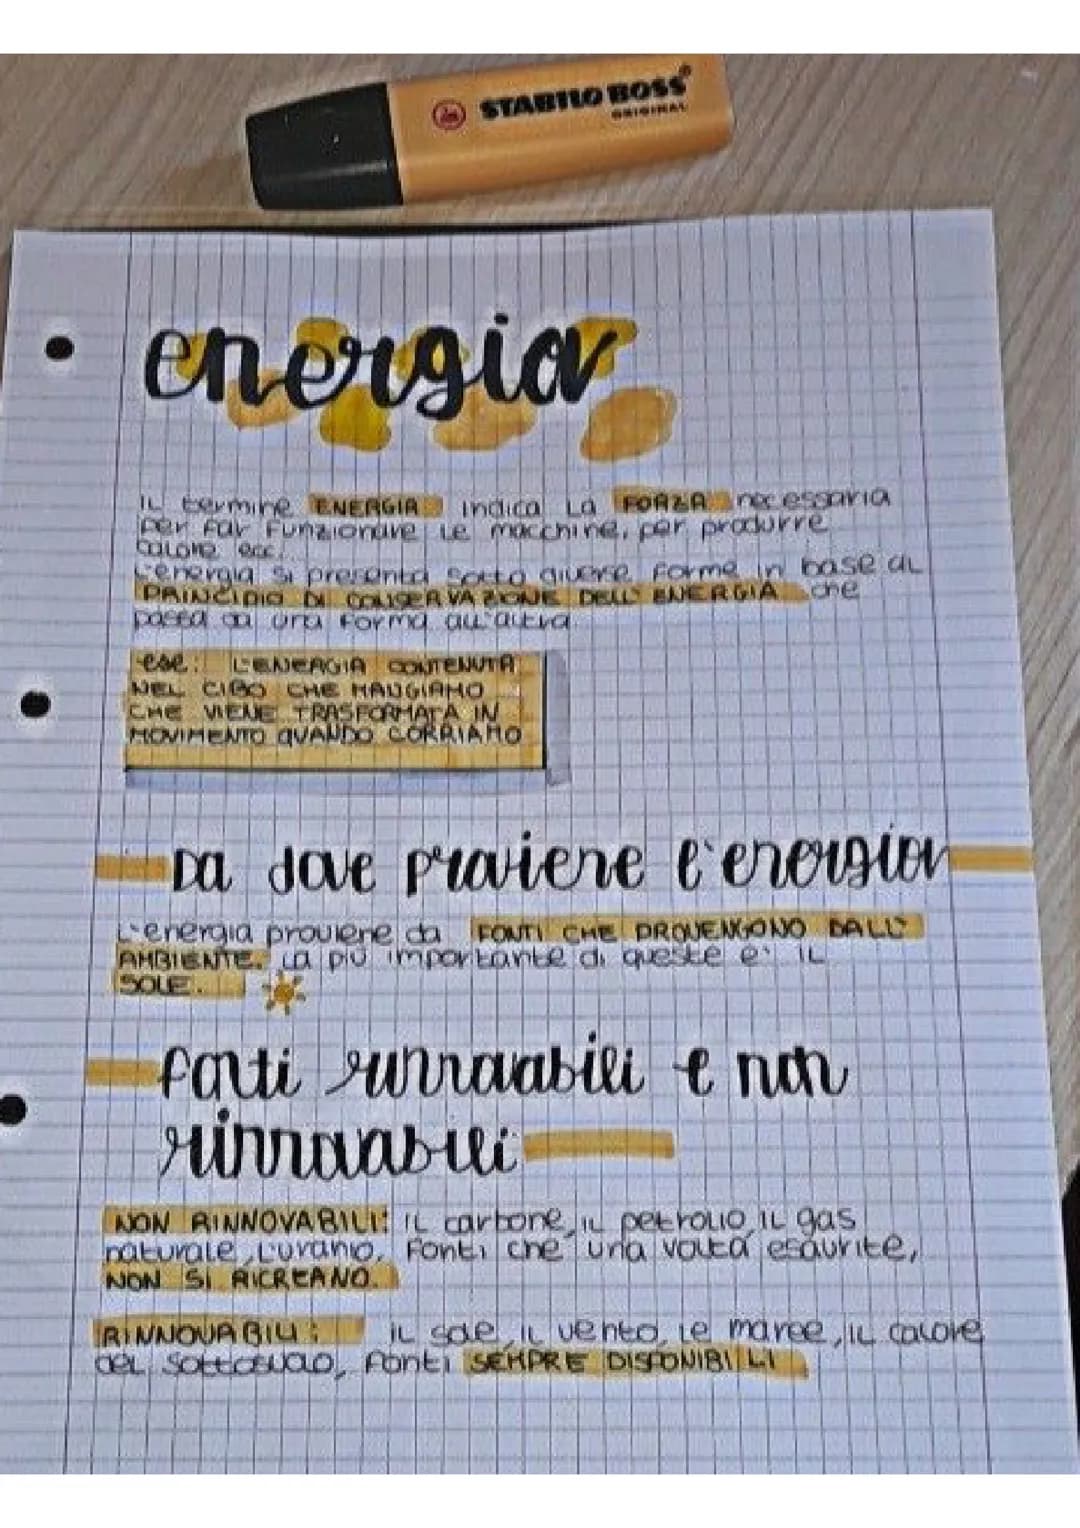 STABILO BOSS
ORIGINAL
energia
IL termine ENERGIA indica La FORZA necessaria
per far funzionare le macchine, per produrre
calore ecc.
L'energia si presenta sotto diverse forme in base al
PRINCIPIO DI CONSERVAZIONE DELL'ENERGIA che
passa da una forma all'altra.
ese: L'ENERGIA CONTENUTA
NEL CIBO CHE MANGIAMO
CHE VIENE TRASFORMATA IN
MOVIMENTO QUANDO CORRIAMO
Da dove proviene l'energia
L'energia proviene da FONTI CHE PROVENGONO DALL'
AMBIENTE. La più importante di queste e' IL
SOLE.
fonti rinnovabili e non
rinnovabili
NON RINNOVABILI: IL carbone, il petrolio, il gas
naturale, l'uranio. Fonti che una volta esaurite,
NON SI RICREANO.
RINNOVABILI: il sole, il vento, le maree, il calore
del sottosuolo, fonti SEMPRE DISPONIBILI